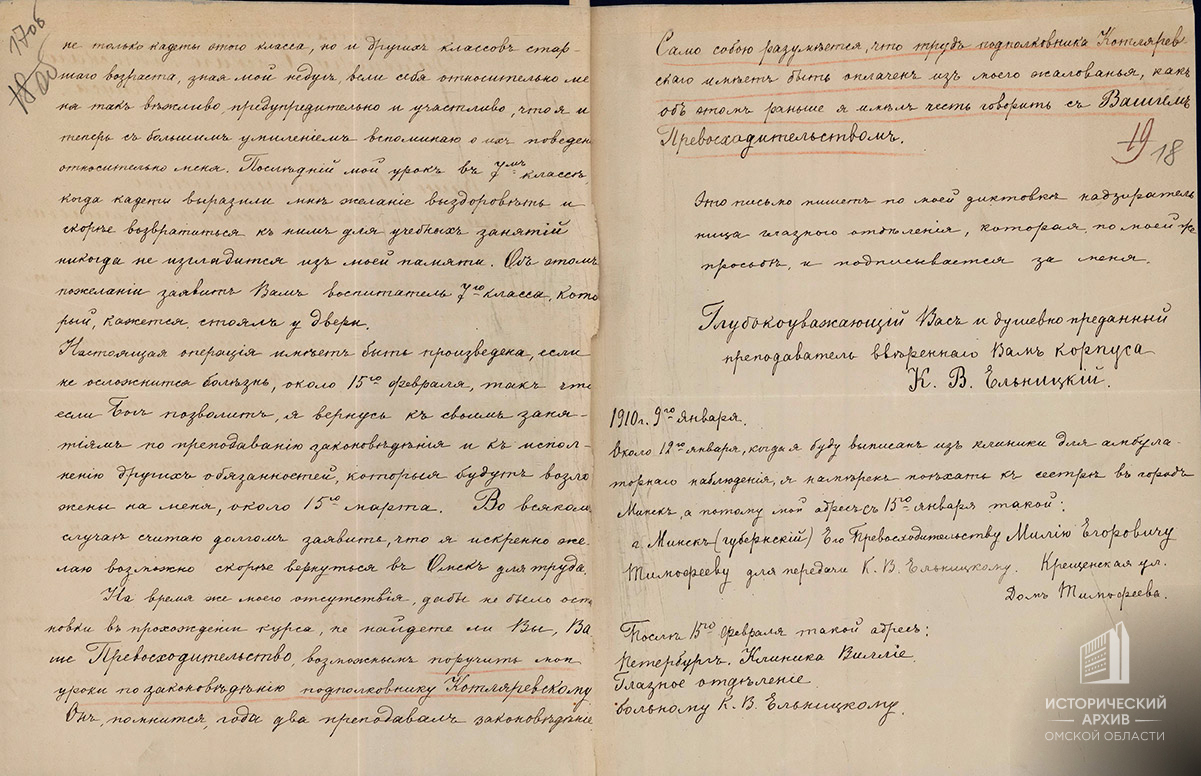 17об
18об
не только кадеты этого класса, но и другихъ классовъ стар-
шаго возраста, зная мой недугъ, вели себя относительно ме
на такъ вѣжливо, предупредительно и участливо, что я и
теперь съ большимъ умиленіемъ вспоминаю о ихъ поведен
относительно меня. Послѣдній мой урокъ въ 7мъ классѣ,
когда кадеты выразили мнѣ желаніе выздоровѣть и
скорѣе возвратиться къ нимъ для учебныхъ занятій
никогда не изгладится изъ моей памяти. Объ этомъ
пожеланіи заявитъ Вамъ воспитатель 7го класса, кото
рый, кажется, стоялъ у двери.
Настоящая операція имѣетъ быть произведена, если
не осложнится болѣзнь, около 15го февраля, такъ что
если Богъ позволитъ, я вернусь къ своимъ заня-
тіямъ по преподаванію законовѣдѣнія и къ испол-
ненію другихъ обязанностей, которыя будутъ возло
жены на меня, около 15го марта. Во всякомъ
случаѣ считаю долгомъ заявить, что я искренно же-
лаю возможно скорѣе вернуться въ Омскъ для труда.
На время же моего отсутствія, дабы не было оста
новки въ прохожденіи курса, не найдете ли Вы, Ва
ше Превосходительство, возможнымъ поручить мои
уроки по законовѣдѣнію подполковнику Котляревскому.
Онъ, помнится, года два преподавалъ законовѣдѣніе
Само собою разумѣется, что трудъ подполковника Котлярев
скаго имѣетъ быть оплаченъ изъ моего жалованья, какъ
объ этомъ раньше я имѣлъ честь говорить съ Вашимъ
Превосходительствомъ.
19 18
Это письмо пишетъ по моей диктовкѣ надзиратель
ница глазного отдѣленія, которая, по моей же
просьбѣ, и подписывается за меня.
Глубокоуважающій Васъ и душевно преданный
преподаватель ввѣреннаго Вамъ корпуса
К. В. Ельницкій.
1910 г. 9го января.
Около 12го января, когда я буду выписанъ изъ клиники для амбула
торнаго наблюденія, я намѣренъ поѣхать къ сестрѣ въ городъ
Минскъ, а потому мой адресъ съ 15го января такой:
г. Минскъ (губернскій) Его Превосходительству Милію Егоровичу
Тимофееву для передачи К. В. Ельницкому. Крещенская ул.
Домъ Тимофеева.
Послѣ 15го февраля такой адресъ:
Петербургъ. Клиника Вилліе.
Глазное отдѣленіе
больному К. В. Ельницкому.
ИСТОРИЧЕСКИЙ
АРХИВ
ОМСКОЙ ОБЛАСТИ